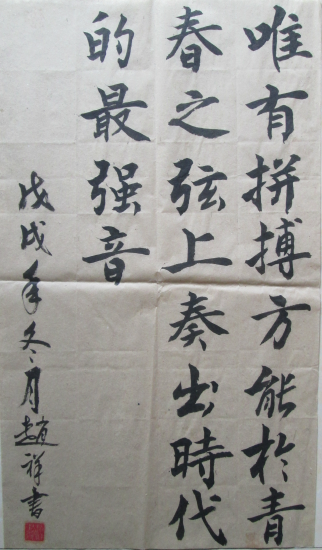 唯有拼搏方能於青
春之弦上奏出時代
的最强音
戊戌年冬月趙祥書